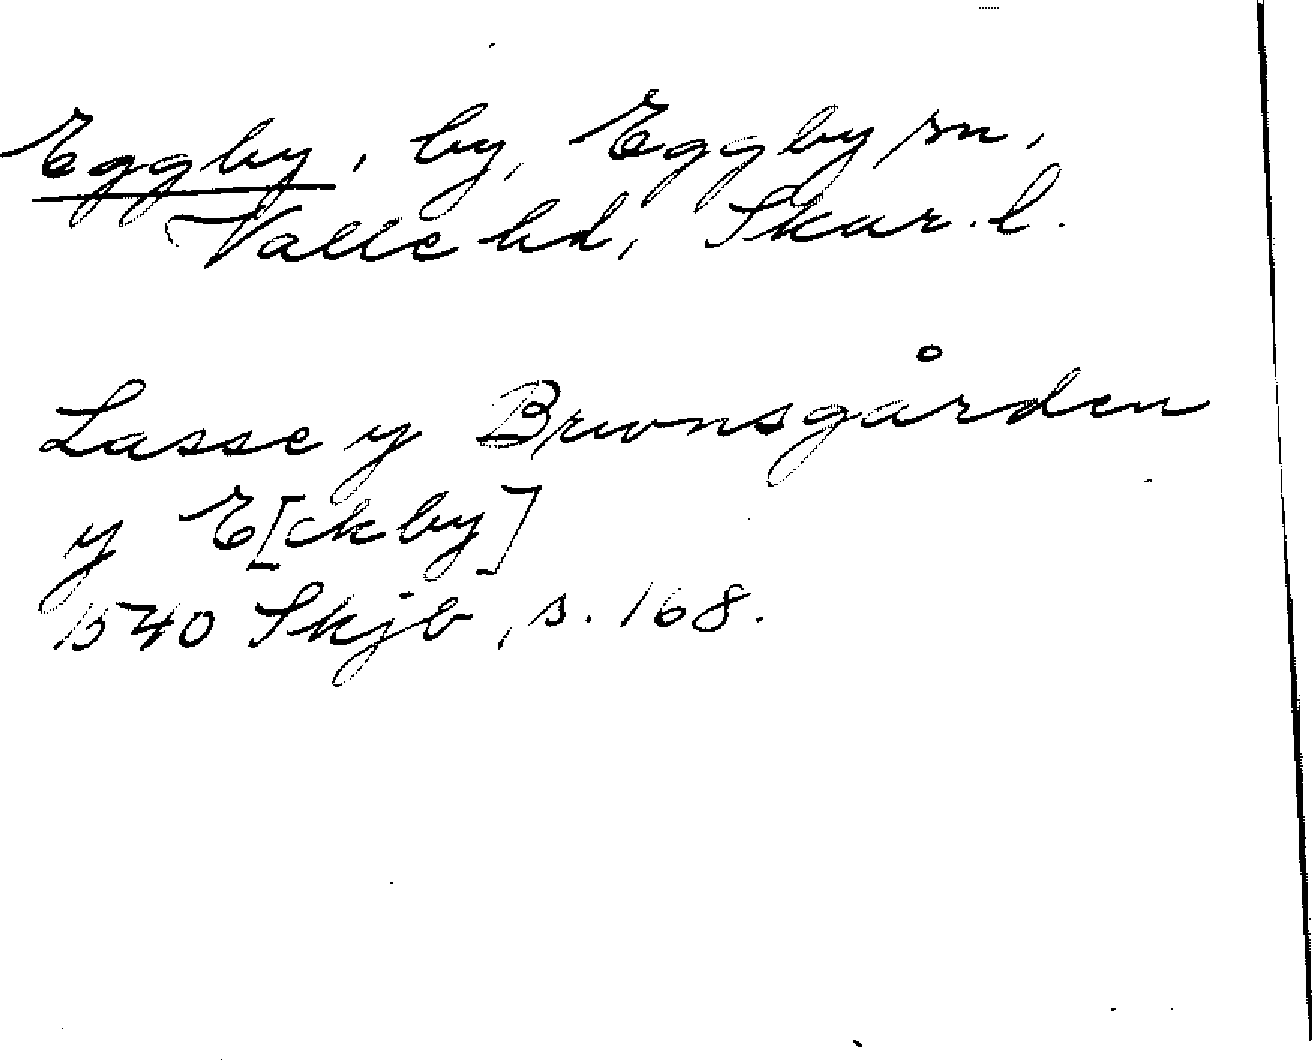 Eggby, by, Eggby sn,
Valle hd, Skar. l.
Lasse y Brwnsgården
y E[ckby]
1540 Skjb, s. 168.